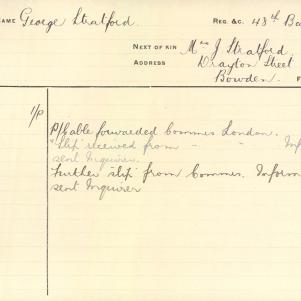 NAME George Stratford. REG. &C. 48th Ba
NEXT OF KIN Mrs J Stratford
ADDRESS Drayton Street
Bowden.
1/P
P/Cable forwarded Commrs London.
"Slip" received from - " Inf
sent Inquirer.
Further slip from Commrs. Inform
sent Inquirer